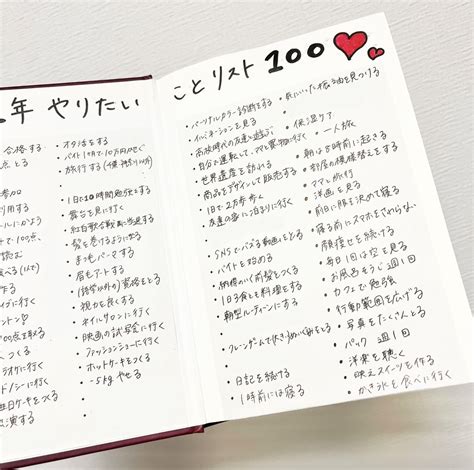 年 やりたい
ことリスト100
合格する
点とる
参加
利用する
にかよう
で100点、
読む
食べる(1人で)
に行く
00点を取る
つくる
ラオケに行く
ドノシーに行く
生日ケーキをつくる
演する
・オタ活をする
・バイト1ヶ月で10万円かせぐ
・旅行する
・1日で10時間勉強をする
・雲台を見に行く
・紅白歌合戦に
・髪を巻けるように
・まつ毛パーマする
・眉毛アートする
・資格をとる
・視力を良くする
・ネイルサロンに行く
・映画の試写会に行く
・ファッションショーに行く
・ホットケーキをつくる
・-5kgやせる
・パーソナルカラー診断をする
・イルミネーションを見る
・高校時代の友達と遊ぶ
・自分で運転して、ママと買物に行く
・世界遺産を訪れる
・商品をデザインして販売する
・1日で2万歩歩く
・友達の家に泊まりに行く
・SNSでバズる動画をとる
・バイトを始める
・納得のいく前髪をつくる
・1日3食とも料理をする
・朝型ルーティーンにする
・クレーンゲームで
・日記を続ける
・1時前には寝る
・保湿ケア
・一人旅
・朝は5時前に起きる
・部屋の模様替えをする
・ママと旅行
・洋画を見る
・前日に服を決めて寝る
・寝る前にスマホをさわらない
・顔痩せを続ける
・毎日1回は空を見る
・お風呂そうじ 週1回
・カフェで勉強
・行動範囲を広げる
・写真をたくさんとる
・パック 週1回
・洋楽を聴く
・映えスイーツを作る
・かき氷を食べに行く